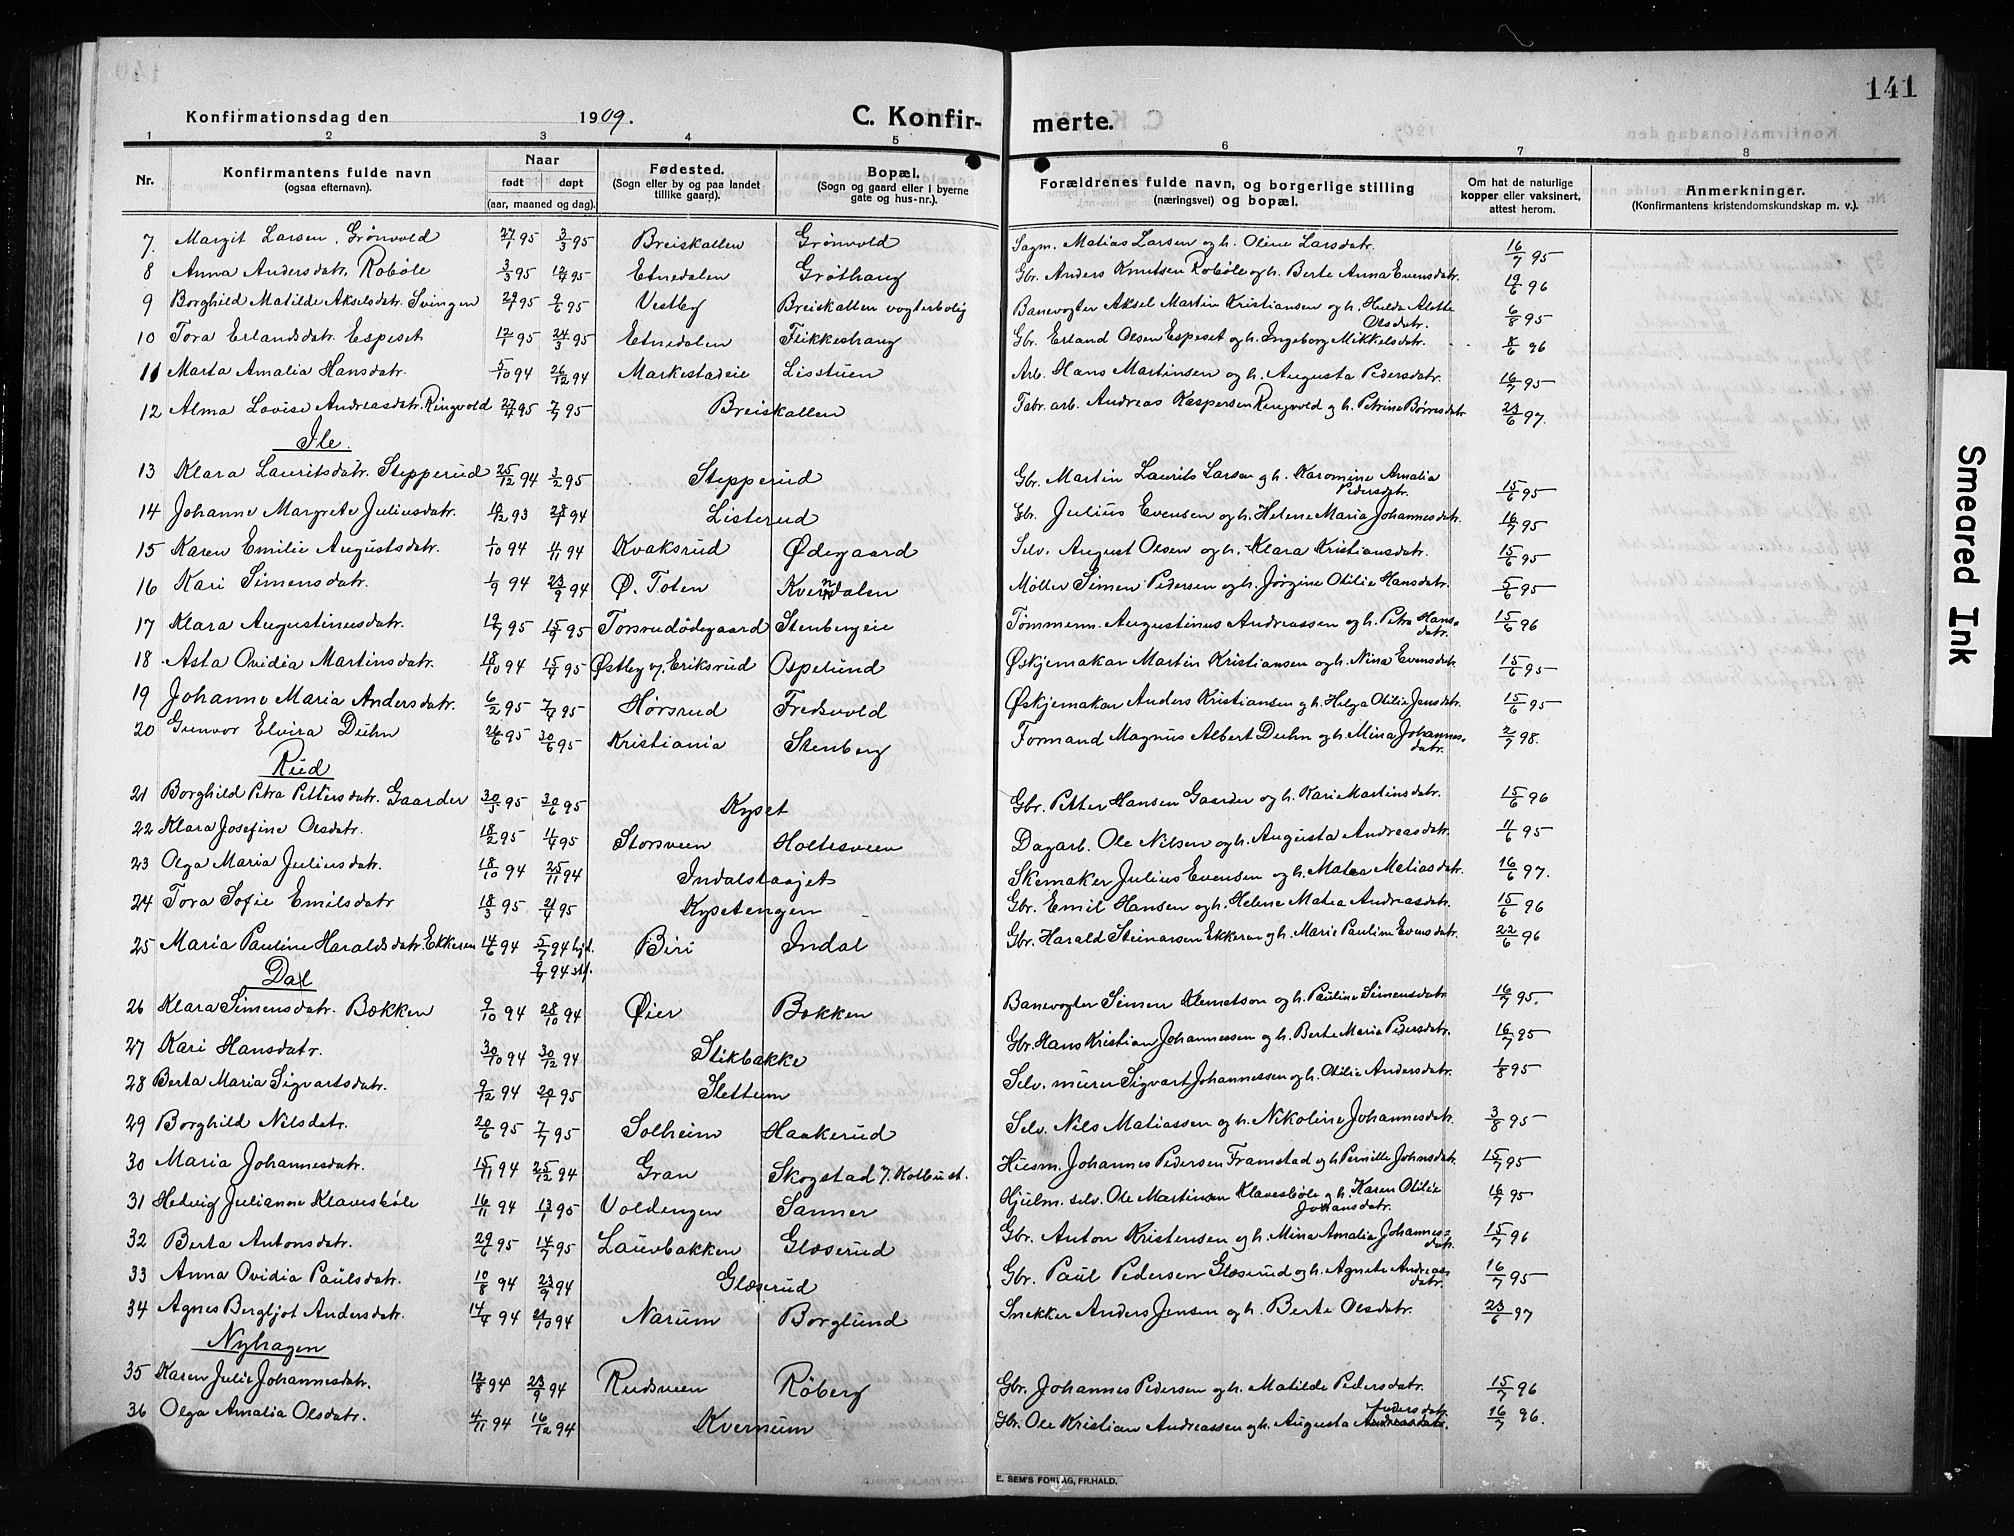 141
Konfirmationsdag den 1909. C. Konfir- merte.
1 2 3 4 5 6 7 8
Nr. Konfirmantens fulde navn (ogsaa efternavn). Naar født døpt (aar, maaned og dag). Fødested. (Sogn eller by og paa landet tillike gaard). Bopæl. (Sogn og gaard eller i byerne gate og hus-nr.). Forældrenes fulde navn, og borgerlige stilling (næringsvei) og bopæl. Om hat de naturlige kopper eller vaksinert, attest herom. Anmerkninger. (Konfirmantens kristendomskundskap m. v.).
7. Margit Larsen Grønvold 27/1 95 3/3 95 Breiskallen Grønvold Sagm. Matias Larsen og h. Oline Larsdatr. 16/7 95
8 Anna Andersdatr. Robøle 3/3 95 12/4 95 Etnedalen Grøthaug Gbr. Anders Knutsen Robøle og h. Berte Anna Evensdatr. 19/6 96
9 Borghild Matilde Akselsdatr. Svingen 29/1 95 9/6 95 Vestby Breiskallen vogterbolig Banevogter Aksel Martin Kristiansen og h. Hulda Alette Olsdatr. 6/8 95
10 Tora Erlandsdatr. Espeset 12/1 95 24/3 95 Etnedalen Flikkeshaug Gbr. Erland Olsen Espeset og h. Ingeborg Mikkelsdatr. 8/6 96
11 Marta Amalia Hansdatr. 5/10 94 26/12 94 Markestadeie Lisstuen Arb. Hans Martinsen og h. Augusta Pedersdatr. 16/7 95
12 Alma Lovise Andreasdatr. Ringvold 27/4 95 7/7 95 Breiskallen Fabr. arb. Andreas Kaspersen Ringvold og h. Petrine Børresdatr. 23/6 97.
Ile.
13 Klara Lauritsdatr. Stepperud 25/12 94 3/2 95 Stepperud Gbr. Martin Laurits Larsen og h. Karomine Amalia Pedersdatr. 15/6 95
14 Johanne Margrete Juliusdatr. 10/12 93 28/1 94 Listerud Gbr. Julius Evensen og h. Helene Maria Johannesdatr. 16/7 95
15 Karen Emilie Augustsdatr. 1/10 94 4/11 94 Kvaksrud Ødegaard Selv. August Olsen og h. Klara Kristiansdatr. 15/6 95
16 Kari Simensdatr. 1/9 94 23/9 94 Ø. Toten Kverndalen Møller Simen Pedersen og h. Jørgine Otilie Hansdatr. 5/6 95
17 Klara Augustinusdatr. 19/7 95 15/9 95 Torsrudødegaard Stenbergeie Tømmerm. Augustinus Andreassen og h. Petra Hansdatr. 15/6 96
18 Asta Ovidia Martinsdatr. 18/10 94 15/4 95 Østby v/ Eriksrud Ospelund Øskjemaker Martin Kristiansen og h. Nina Evensdatr. 15/6 95
19 Johanne Maria Andersdatr. 6/2 95 7/4 95 Hørsrud Fredsvold Øskjemaker Anders Kristiansen og h. Helga Otilie Jensdatr. 15/6 95
20 Gunvor Elvira Duhn 26/6 95 30/6 95 Kristiania Stenberg Formand Magnus Albert Duhn og h. Mina Johannesdatr. 2/7 98.
Rud
21 Borghild Petra Pettersdatr. Gaarder 30/5 95 30/6 95 Kyset Gbr. Petter Hansen Gaarder og h. Kari Martinsdatr. 15/6 96
22 Klara Josefine Olsdatr. 18/2 95 4/4 95 Storsveen Holtesveen Dagarb. Ole Nilsen og h. Augusta Andreasdatr. 11/6 95
23 Olga Maria Juliusdatr. 18/10 94 25/11 94 Indalstaajet Skomaker Julius Evensen og h. Matea Matiasdatr. 16/6 97.
24 Tora Sofie Emilsdatr 18/3 95 21/4 95 Kysetengen Gbr. Emil Hansen og h. Helene Matea Andreasdatr. 15/6 96
25 Maria Pauline Haraldsdatr. Ekkeren 14/6 94 5/7 94 hjd. 9/9 94 stf. Biri Indal Gbr. Harald Steinarsen Ekkeren og h. Marie Pauline Evensdatr. 22/6 96
Dal
26 Klara Simensdatr. Bækken 9/10 94 28/10 94 Øier Bækken Banevogter Simen Klemetsen og h. Pauline Simensdatr. 16/7 95.
27 Kari Hansdatr. 30/10 94 30/12 94 Stikbakke Gbr. Hans Kristian Johannessen og h. Berte Marie Pedersdatr. 16/7 95
28 Berta Maria Sigvartsdatr. 9/12 94 20/1 95 Slettum Selv. murer Sigvart Johannessen og h. Otilie Andersdatr. 1/8 95
29 Borghild Nilsdatr. 20/6 95 7/7 95 Solheim Haakerud Selv. Nils Matiassen og h. Nikoline Johannesdatr. 3/8 95
30 Maria Johannesdatr. 15/11 94 25/12 94 Gran Skogstad v/ Kolbust. Husm. Johannes Pedersen Framstad og h. Pernille Johnsdatr. 15/7 95
31 Hedvig Julianne Klavesbøle 16/11 94 13/1 95 Voldengen Sanner Hjulm. selv. Ole Martinsen Klavesbøle og h. Karen Otilie Johansdatr. 16/7 95
32 Berta Antonsdatr. 29/6 95 14/7 95 Lauvbakken Glæserud Gbr. Anton Kristensen og h. Mina Amalia Johannesdatr. 15/7 96
33 Anna Ovidia Paulsdatr. 10/8 94 23/9 94 Glæserud Gbr. Paul Pedersen Glæserud og h. Agnete Andreasdatr. 16/7 95
34 Agnes Bergljot Andersdatr. 14/4 94 21/10 94 Narum Borglund Snekker Anders Jensen og h. Berte Olsdatr. 23/6 97
Nyhagen
35 Karen Julie Johannesdatr. 12/8 94 23/9 94 Rudsveen Røberg Gbr. Johannes Pedersen og h. Matilde Pedersdatr. 15/7 96
36 Olga Amalia Olsdatr. 4/11 94 16/12 94 Kvernum Gbr. Ole Kristian Andreassen og h. Augusta Pedersdatr. 16/7 96.
E. SEM'S FORLAG, FR.HALD.
Smeared Ink